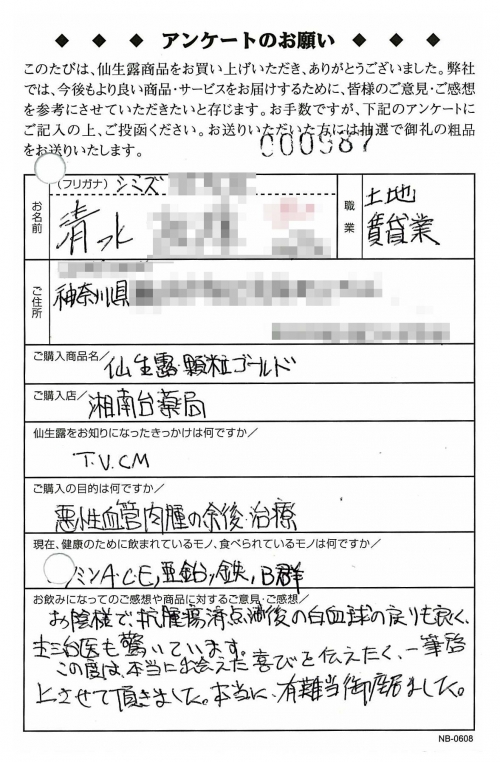 ◆ ◆ ◆ アンケートのお願い ◆ ◆ ◆
このたびは、仙生露商品をお買い上げいただき、ありがとうございました。弊社
では、今後もより良い商品・サービスをお届けするために、皆様のご意見・ご感想
を参考にさせていただきたいと存じます。お手数ですが、下記のアンケートに
ご記入の上、ご投函ください。お送りいただいた方には抽選で御礼の粗品
をお送りいたします。
000087
お名前
(フリガナ) シミズ
清水
職業
土地
賃貸業
ご住所
神奈川県
ご購入商品名/仙生露・顆粒ゴールド
ご購入店/湘南台薬局
仙生露をお知りになったきっかけは何ですか/
T.V.CM
ご購入の目的は何ですか/
悪性血管肉腫の余後・治療
現在、健康のために飲まれているモノ、食べられているモノは何ですか/
ミンA.C.E,亜鉛,鉄,B群
お飲みになってのご感想や商品に対するご意見・ご感想/
お陰様で、抗腫瘍済点滴後の白血球の戻りも良く、
主治医も驚いています。
この度は、本当に出会えた喜びを伝えたく、一筆啓
上させて頂きました。本当に、有難当御座居ました。
NB-0608